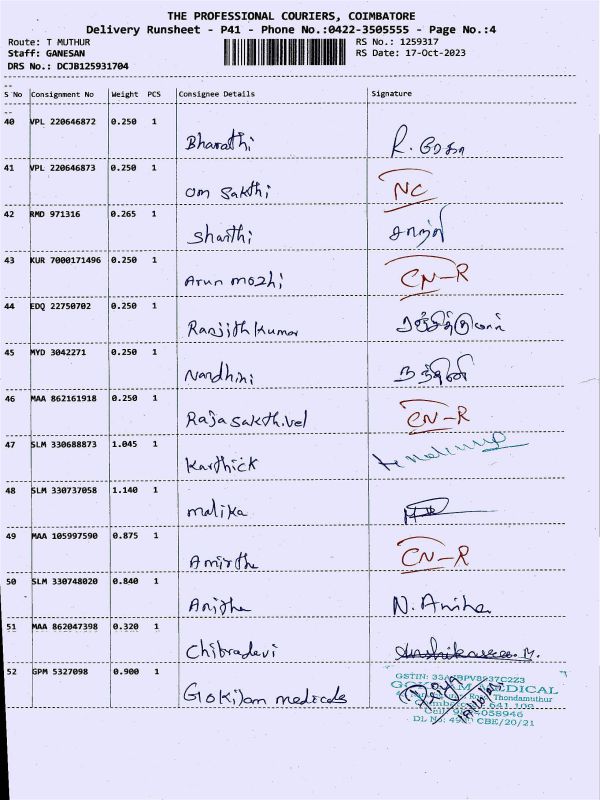 THE PROFESSIONAL COURIERS, COIMBATORE
Delivery Runsheet - P41 - Phone No.:0422-3505555 - Page No.:4
Route: T MUTHUR RS No.: 1259317
Staff: GANESAN RS Date: 17-Oct-2023
DRS No.: DCJB125931704
S No Consignment No Weight PCS Consignee Details Signature
40 VPL 220646872 0.250 1
Bharathi R. ரேகா
41 VPL 220646873 0.250 1
Om Sakthi NC
42 RMD 971316 0.265 1
Shanthi சாந்தி
43 KUR 7000171496 0.250 1
Arun mozhi CN-R
44 EDQ 22750702 0.250 1
Ranjith Kumar ரஞ்சித்குமார்
45 MYD 3042271 0.250 1
Nandhini நந்தினி
46 MAA 862161918 0.250 1
Rajasakthivel CN-R
47 SLM 330688873 1.045 1
Karthick
48 SLM 330737058 1.140 1
malika
49 MAA 105997590 0.875 1
Amirtha CN-R
50 SLM 330748020 0.840 1
Anitha N. Anitha
51 MAA 862047398 0.320 1
Chitradevi
52 GPM 5327098 0.900 1
Gokilam medicals
GSTIN:
MEDICAL
Thondamuthur
641 109
DL No: CBE/20/21